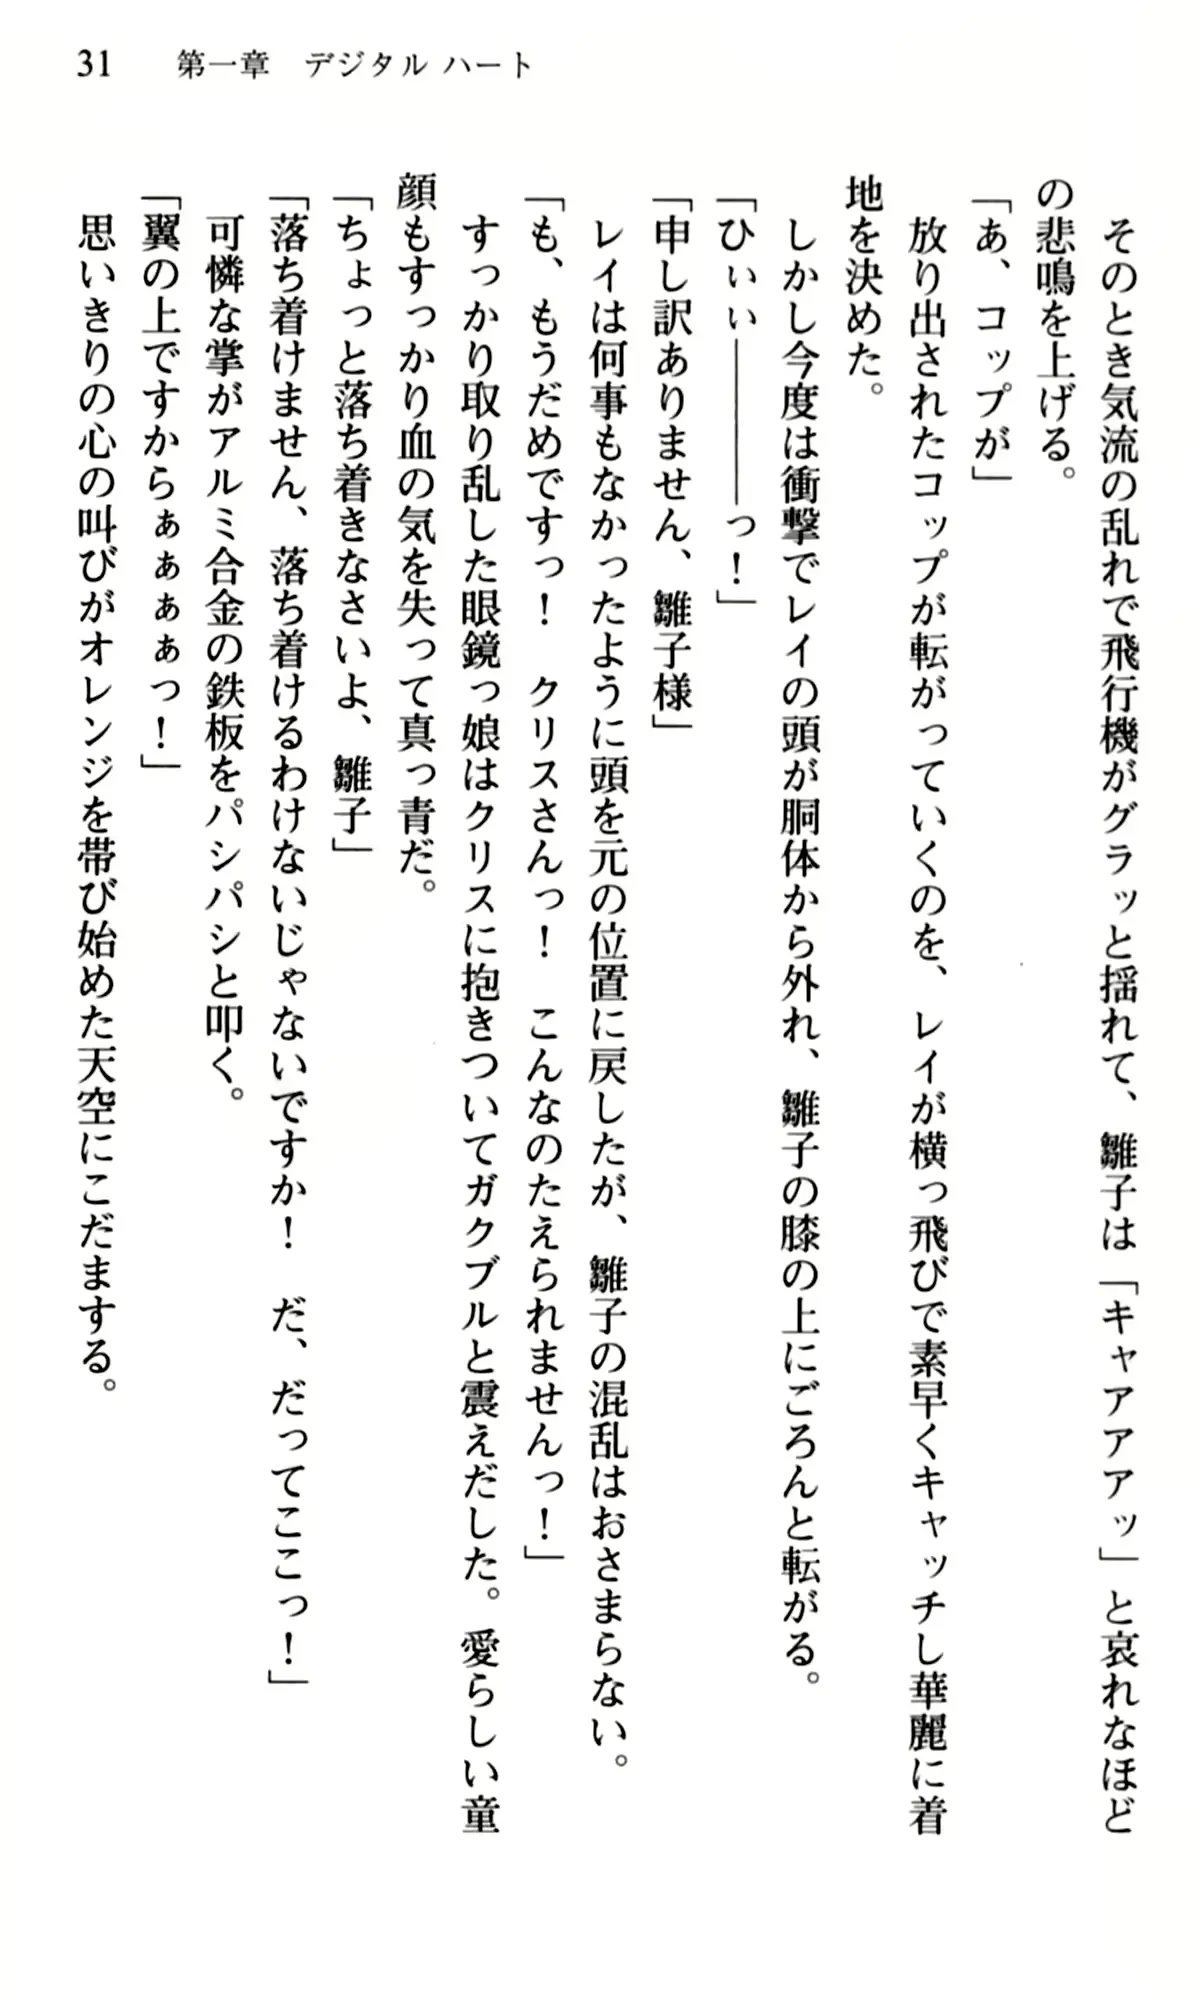 31　第一章　デジタル ハート
　そのとき気流の乱れで飛行機がグラッと揺れて、雛子は「キャアアアッ」と哀れなほど
の悲鳴を上げる。
「あ、コップが」
　放り出されたコップが転がっていくのを、レイが横っ飛びで素早くキャッチし華麗に着
地を決めた。
　しかし今度は衝撃でレイの頭が胴体から外れ、雛子の膝の上にごろんと転がる。
「ひぃぃ――――っ！」
「申し訳ありません、雛子様」
　レイは何事もなかったように頭を元の位置に戻したが、雛子の混乱はおさまらない。
「も、もうだめですっ！　クリスさんっ！　こんなのたえられませんっ！」
　すっかり取り乱した眼鏡っ娘はクリスに抱きついてガクブルと震えだした。愛らしい童
顔もすっかり血の気を失って真っ青だ。
「ちょっと落ち着きなさいよ、雛子」
「落ち着けません、落ち着けるわけないじゃないですか！　だ、だってここっ！」
　可憐な掌がアルミ合金の鉄板をパシパシと叩く。
「翼の上ですからぁぁぁぁっ！」
　思いきりの心の叫びがオレンジを帯び始めた天空にこだまする。